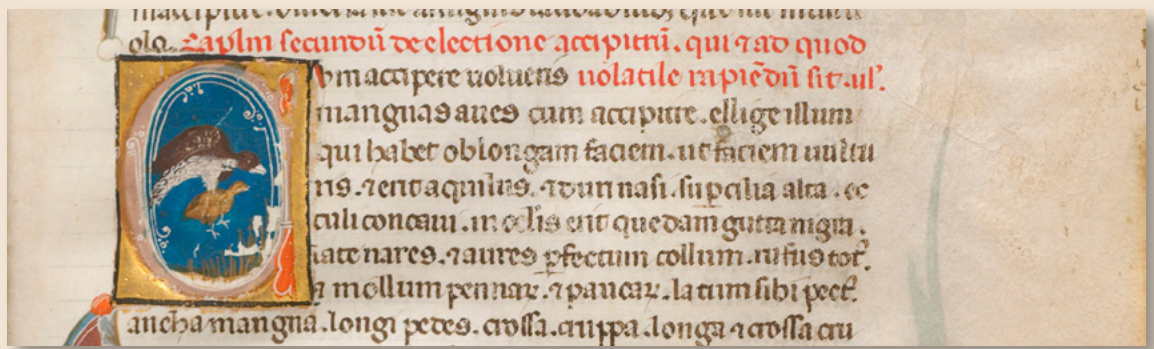 olo. Caplm secundū de electione accipitrū. qui ⁊ ad quod
um accipere uolueris uolatile rapiēdū sit. ul'.
mangnas aues cum accipitre. ellige illum
qui habet oblongam faciem. ut faciem uultu
ris. ⁊ erit aquilus. ⁊ duri nasi. supcilia alta. oc
culi concaui. in oclis erit quedam gutta nigra.
late nares. ⁊ aures pfectum collum. rufus tot'.
mollum pennaꝝ. ⁊ paucaꝝ. latum sibi pect'.
ancha mangna. longi pedes. crossa. cruppa. longa ⁊ crossa cru